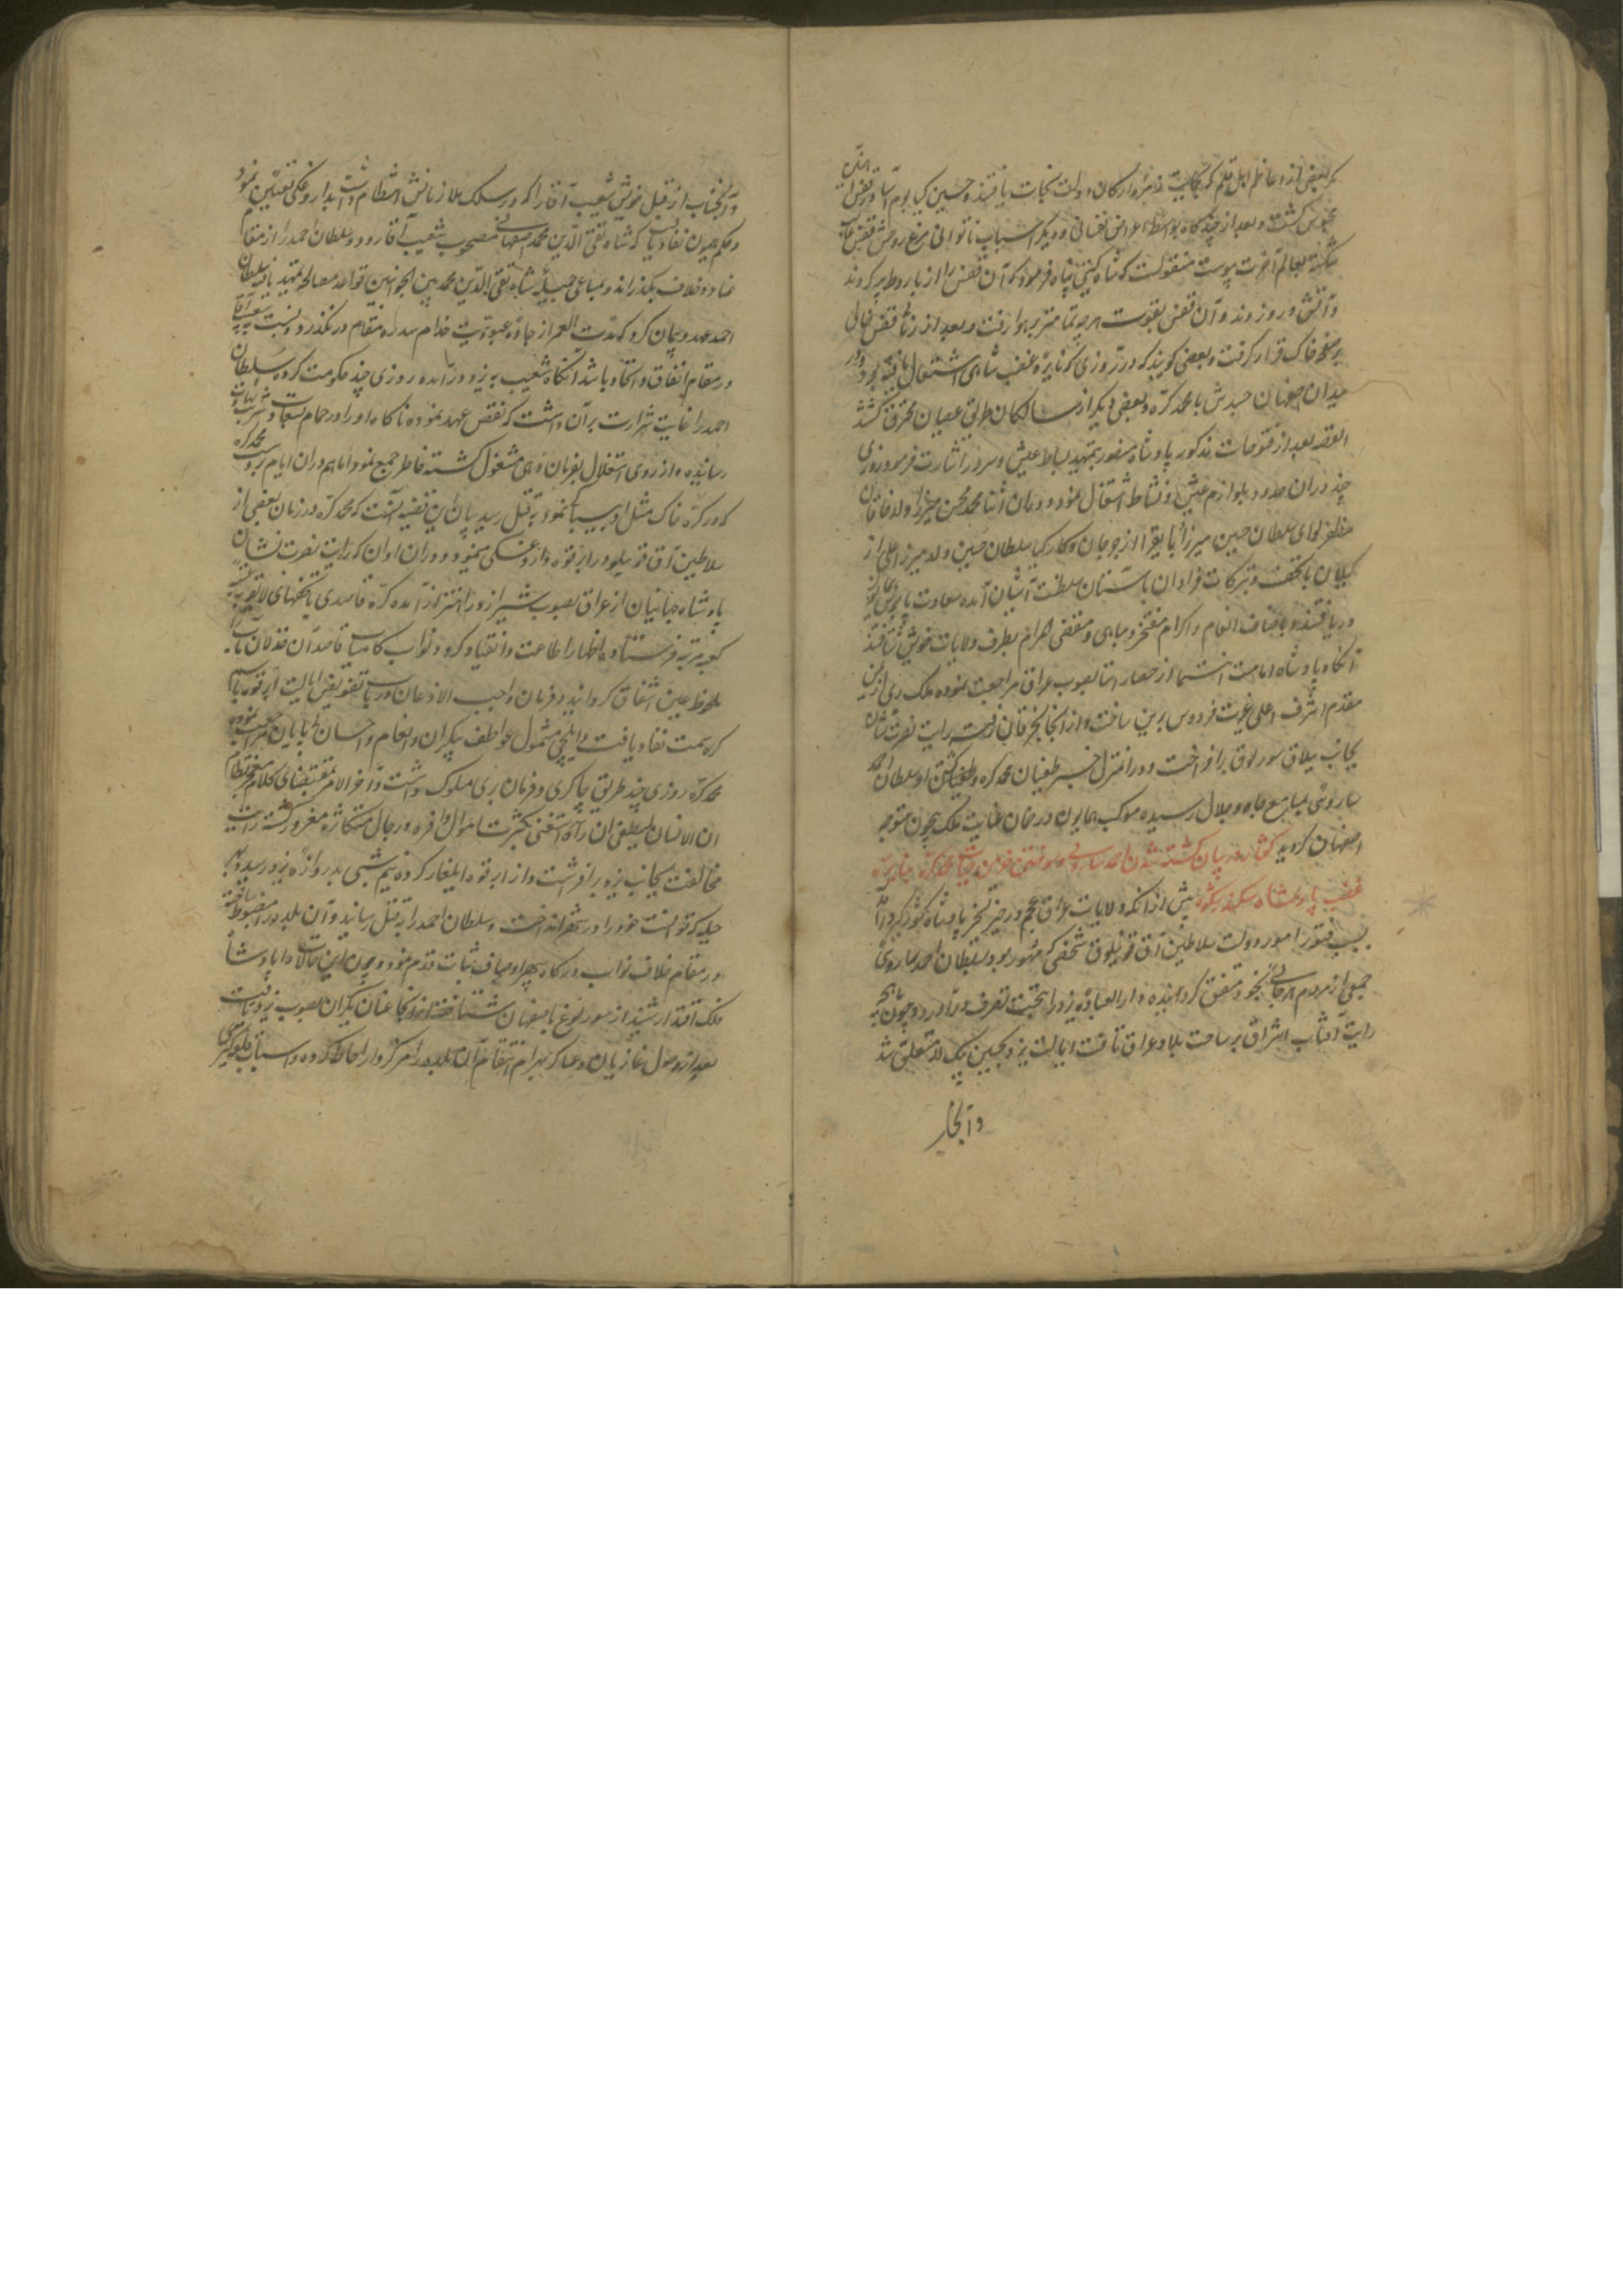 مگر بعضی از اعاظم اهل قلم که بحمایت زمرهٔ ارکان دولت نجات یافتند و حسین کیا یوم آسا در قفس آهنین
محبوس گشت و بعد از چندگاه بواسطه اعراض نفسانی و دیگر اسباب ناتوانی مرغ روحش قفس قالب
شکسته بعالم آخرت پیوست منقولست که شاه گیتی پناه فرمود که آن قفس را از باروط پر کردند
و آتش در و زدند و آن قفس بقوت هر چه تمامتر بر هوا رفت و بعد از زمانی قفس خالی
بر صفحه خاک قرار گرفت و بعضی گویند که در روزی که نایره غضب شاهی اشتعال یافته بود در
میدان اصفهان جسدش با محمد کره و بعضی دیگر از سالکان طریق عصیان محترق گشتند
القصه بعد از فتوحات مذکور پادشاه مظفر بتمهید بساط عیش و سرور اشارت فرمود و روزی
چند در ان حدود بلوازم عیش و نشاط اشتغال نمود و در ان اثنا محمد محسن میرزا ولد خاقان
مظفر لوای سلطان حسین میرزا بایقرا از جرجان و کارکیا سلطان حسین ولد میرزا علی از
گیلان با تحف و تبرکات فراوان باستان سلطنت آشیان آمده سعادت پایبوس
دریافتند و باصناف انعام و اکرام مفتخر و مباهی و مقضی المرام بطرف ولایات خویش شتافتند
آنگاه پادشاه امامت انتما از حصار استا بصوب عراق مراجعت نموده ملک ری از یمن
مقدم اشرف اعلی غیرت فردوس برین ساخت و از آنجا بخرقان رفته رایت نصرت نشان
بجانب ییلاق سورلوق برافراخت و در انمنزل خبر طغیان محمد کره و کشتن او سلطان احمد
ساروئی بمسامع جاه و جلال رسیده موکب همایون در ضمان عنایت ملک بیچون متوجه
اصفهان گردید گفتار در بیان کشته شدن احمد ساروئی و سوختن محمد کره بنایره
غضب پادشاه سکندر شکوه پیش از آنکه ولایات عراق عجم در حیز تسخیر پادشاه کشورگیر در آید
بسبب فتور امور دولت سلاطین آق قوینلوق شخصی که مشهور بود بسلطان احمد ساروئی
جمعی از مردم هرجائی بخود متفق گردانیده دار العباده یزد را بتحت تصرف در آورد و چون ماهچه
رایت آفتاب اشراق بر ساحت بلاد عراق تافت ایالت یزد بحسین بیک لله متعلق شد
و آنجناب
و آنجناب از قبل خویش شعیب آقا را که در سلک ملازمانش انتظام داشت بداروغگی تعیین نمود
و حکم همایون نفاذ یافت که شاه تقی الدین محمد اصفهانی مصحوب شعیب آقا رود و سلطان احمد را از مقام
عناد و خلاف بگذراند و بمساعی جمیله شاه تقی الدین محمد بین الجانبین قواعد مصالحه تمهید یافته سلطان
احمد عهد و پیمان کرد که مدت العمر از جاده عبودیت خدام سدره مقام در نگذرد و نسبت بشعیب آقا
در مقام اتفاق و اتحاد باشد آنگاه شعیب به یزد در آمده روزی چند حکومت کرد و سلطان
احمد را غایت شرارت بر آن داشت که نقض عهد نموده ناگاه او را در حمام بسعادت شهادت
رسانیده و از روی استقلال بفرمان دهی مشغول گشته خاطر جمع نمود اما هم در ان ایام بدست محمد کره
که در کره خاک مثل او بیباکی نبود بقتل رسید بیان این قضیه آنست که محمد کره در زمان بعضی از
سلاطین آق قوینلو در ابرقوه داروغگی مینمود و در ان اوان که رایت نصرت نشان
پادشاه جهانیان از عراق بصوب شیراز در اهتزاز آمده کره قاصدی با تحفهای لایق بعتبه
کعبه مرتبه فرستاده اظهار اطاعت و انقیاد کرد و نواب کامیاب قاصد آن خذلان مآب را
ملحوظ عین اشفاق گردانید و فرمان واجب الاذعان در باب تفویض ایالت ابرقوه باسم
کره سمت نفاذ یافت و ایلچی مشمول عواطف بیکران و انعام و احسان بی پایان مراجعت نموده
محمد کره روزی چند طریق چاکری و فرمان بری مسلوک داشت و آخر الامر بمقتضای کلام معجز نظام
ان الانسان لیطغی ان رآه استغنی بکثرت اموال وافره و رجال متکاثره مغرور گشته رایت
مخالفت بجانب یزد برافراشت و از ابرقوه ایلغار کرده نیم شبی بدروازه یزد رسید و بهر
حیله که توانست خود را در شهر انداخت و سلطان احمد را بقتل رسانید و آن بلده را مضبوط ساخته
در مقام خلاف نواب درگاه سپهر اوصاف ثبات قدم نمود و چون این حالات را پادشاه
فلک اقتدار شنید از سورلوغ باصفهان شتافته از آنجا عنان یکران بصوب یزد تافت
بعد از وصول غازیان و عساکر بهرام انتقام آن بلده را مرکز وار احاطه کرده و اسباب قلعه گیری